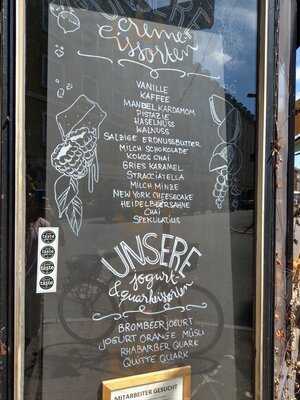 UNSERE
Cremeeissorten
VANILLE
KAFFEE
MANDELKARDAMOM
PISTAZIE
HASELNUSS
WALNUSS
SALZIGE ERDNUSSBUTTER
MILCH SCHOKOLADE
KOKOS CHAI
GRIES KARAMEL
STRACCIATELLA
MILCH MINZE
NEW YORK CHEESECAKE
HEIDELBEERSAHNE
CHAI
SPEKULATIUS
UNSERE
Jogurt-
& Quarkeissorten
BROMBEERJOGURT
JOGURT ORANGE MÜSLI
RHABARBER QUARK
QUITTE QUARK
MITARBEITER GESUCHT